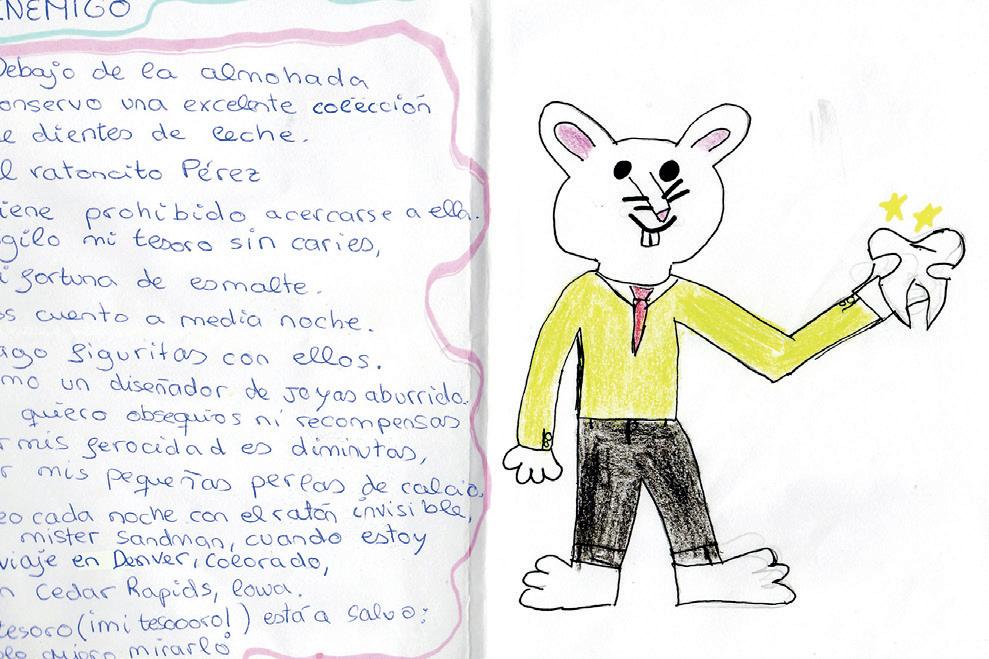 ENEMIGO
Debajo de la almohada
onservo una excelente colección
e dientes de leche.
l ratoncito Pérez
iene prohibido acercarse a ella.
gilo mi tesoro sin caries,
i fortuna de esmalte.
os cuento a media noche.
ago figuritas con ellos.
mo un diseñador de joyas aburrido.
quiero obsequios ni recompensas
r mis ferocidad es diminutas,
r mis pequeñas perlas de calcio.
eo cada noche con el ratón invisible,
mister Sandman, cuando estoy
viaje en Denver, Colorado,
n Cedar Rapids, Iowa.
tesoro (¡mi tesoooro!) está a salvo:
quiero mirarlo